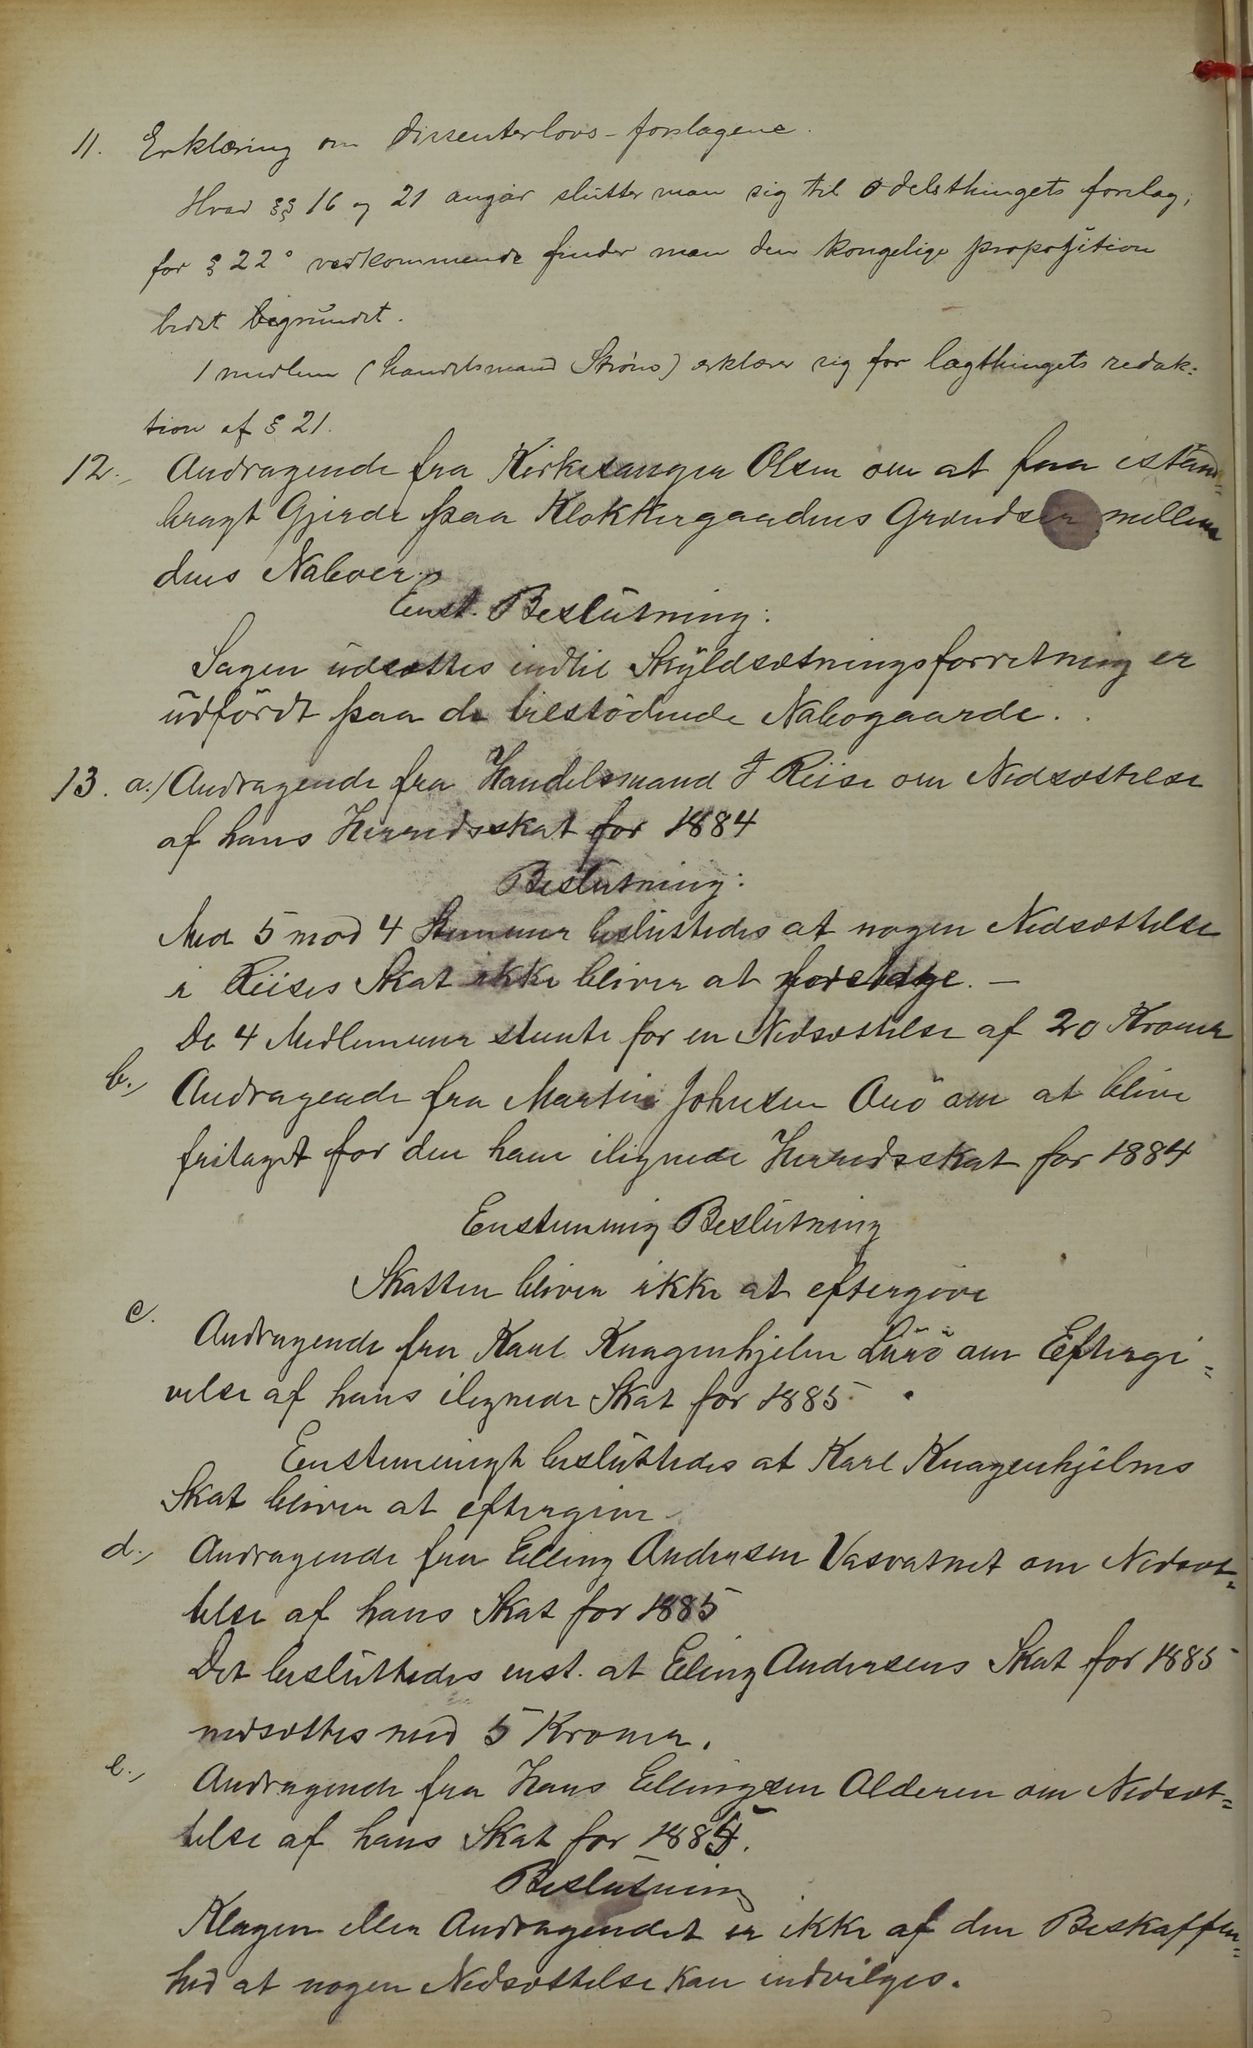 11. Erklæring om dissenterlovs-forslagene.
Hvad §§ 16 og 21 angår slutter man sig til Odelsthingets forslag;
for § 22° vedkommende finder man den kongelige proposition
bedst begrundet.
1 medlem (handelsmand Strøm) erklærer sig for lagthingets redak-
tion af § 21.
12., Andragende fra Kirkesanger Olsen om at faa istand-
bragt Gjerde paa Klokkergaardens Grændser mellem
dens Naboer.
Enst. Beslutning:
Sagen udsættes indtil Skyldsætningsforretning er
udfördt paa de tilstödende Nabogaarde.
13. a./ Andragende fra Handelsmand J Riise om Nedsættelse
af hans Herredsskat for 1884
Beslutning:
Med 5 mod 4 Stemmer besluttedes at nogen Nedsættelse
i Riises Skat ikke bliver at foretage. –
De 4 Medlemmer stemte for en Nedsættelse af 20 Kroner
b., Andragende fra Martin Johnsen Onö om at blive
fritaget for den ham ilignede Herredsskat for 1884
Enstemmig Beslutning
Skatten bliver ikke at eftergive
c. Andragende fra Karl Knagenhjelm Lurö om Eftergi-
velse af hans ilignede Skat for 1885.
Enstemmigt besluttedes at Karl Knagenhjelms
Skat bliver at eftergive
d., Andragende fra Elling Andersen Vasvatnet om Nedsæt-
telse af hans Skat for 1885
Det besluttedes enst. at Elling Andersens Skat for 1885
nedsættes med 5 Kroner.
e., Andragende fra Hans Ellingsen Alderen om Nedsæt-
telse af hans Skat for 1885.
Beslutning
Klagen eller Andragendet er ikke af den Beskaffen-
hed at nogen Nedsættelse kan indvilges.